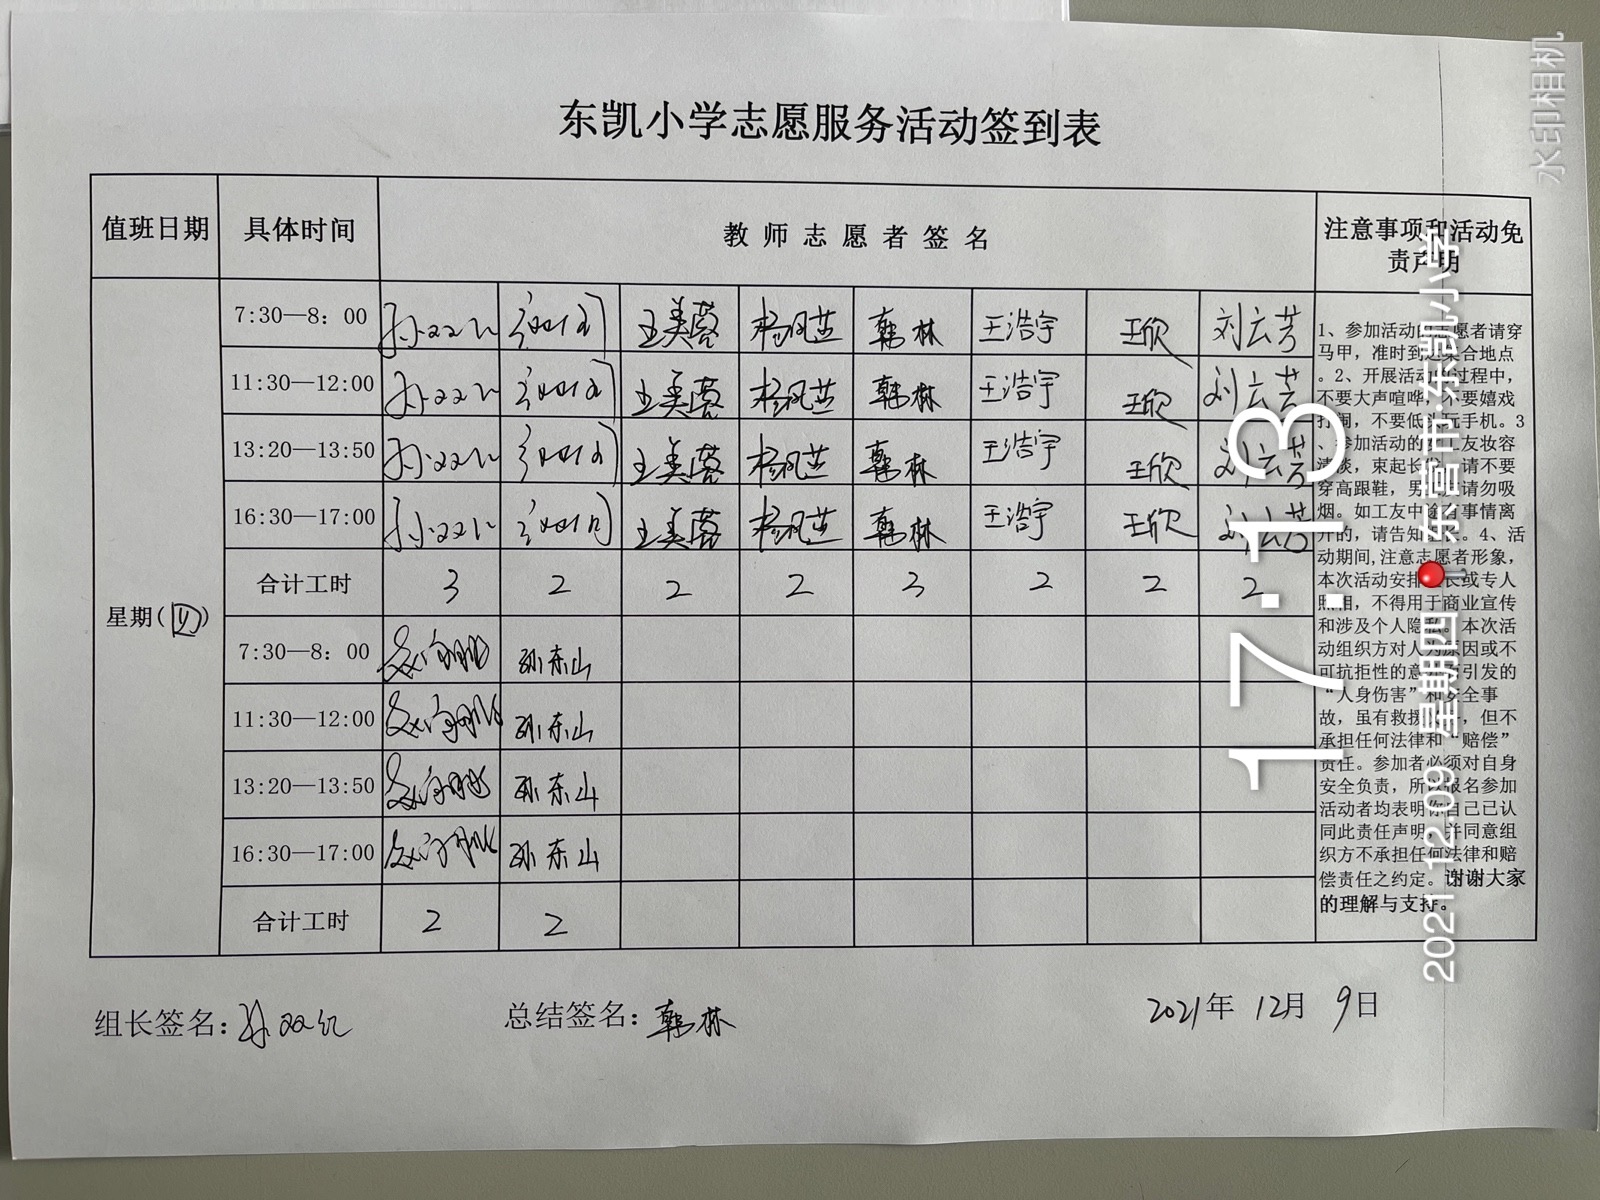 东凯小学志愿服务活动签到表
值班日期 具体时间 教师志愿者签名 注意事项和活动免
责声明
7:30—8：00 孙双红 王美蓉 杨风芝 韩林 王浩宇 王欣 刘云芳
11:30—12:00 孙双红 王美蓉 杨风芝 韩林 王浩宇 王欣 刘云芳
13:20—13:50 孙双红 王美蓉 杨风芝 韩林 王浩宇 王欣 刘云芳
16:30—17:00 孙双红 王美蓉 杨风芝 韩林 王浩宇 王欣 刘云芳
合计工时 3 2 2 2 3 2 2 2
星期(四)
7:30—8：00 孙东山
11:30—12:00 孙东山
13:20—13:50 孙东山
16:30—17:00 孙东山
合计工时 2 2
1、参加活动的志愿者请穿
马甲，准时到达集合地点
。2、开展活动的过程中，
不要大声喧哗，不要嬉戏
打闹，不要低头玩手机。3
、参加活动的女工友妆容
清淡，束起长发，请不要
穿高跟鞋，男工友请勿吸
烟。如工友中途有事情离
开的，请告知组长。4、活
动期间,注意志愿者形象，
本次活动安排组长或专人
照相，不得用于商业宣传
和涉及个人隐私。本次活
动组织方对人为原因或不
可抗拒性的意外所引发的
“人身伤害”和安全事
故，虽有救援义务，但不
承担任何法律和“赔偿”
责任。参加者必须对自身
安全负责，所以报名参加
活动者均表明你自己已认
同此责任声明，并同意组
织方不承担任何法律和赔
偿责任之约定。谢谢大家
的理解与支持。
组长签名：孙双红 总结签名：韩林 2021年 12月 9日
17:13
2021.12.09 星期四 东营市·东凯小学
水印相机